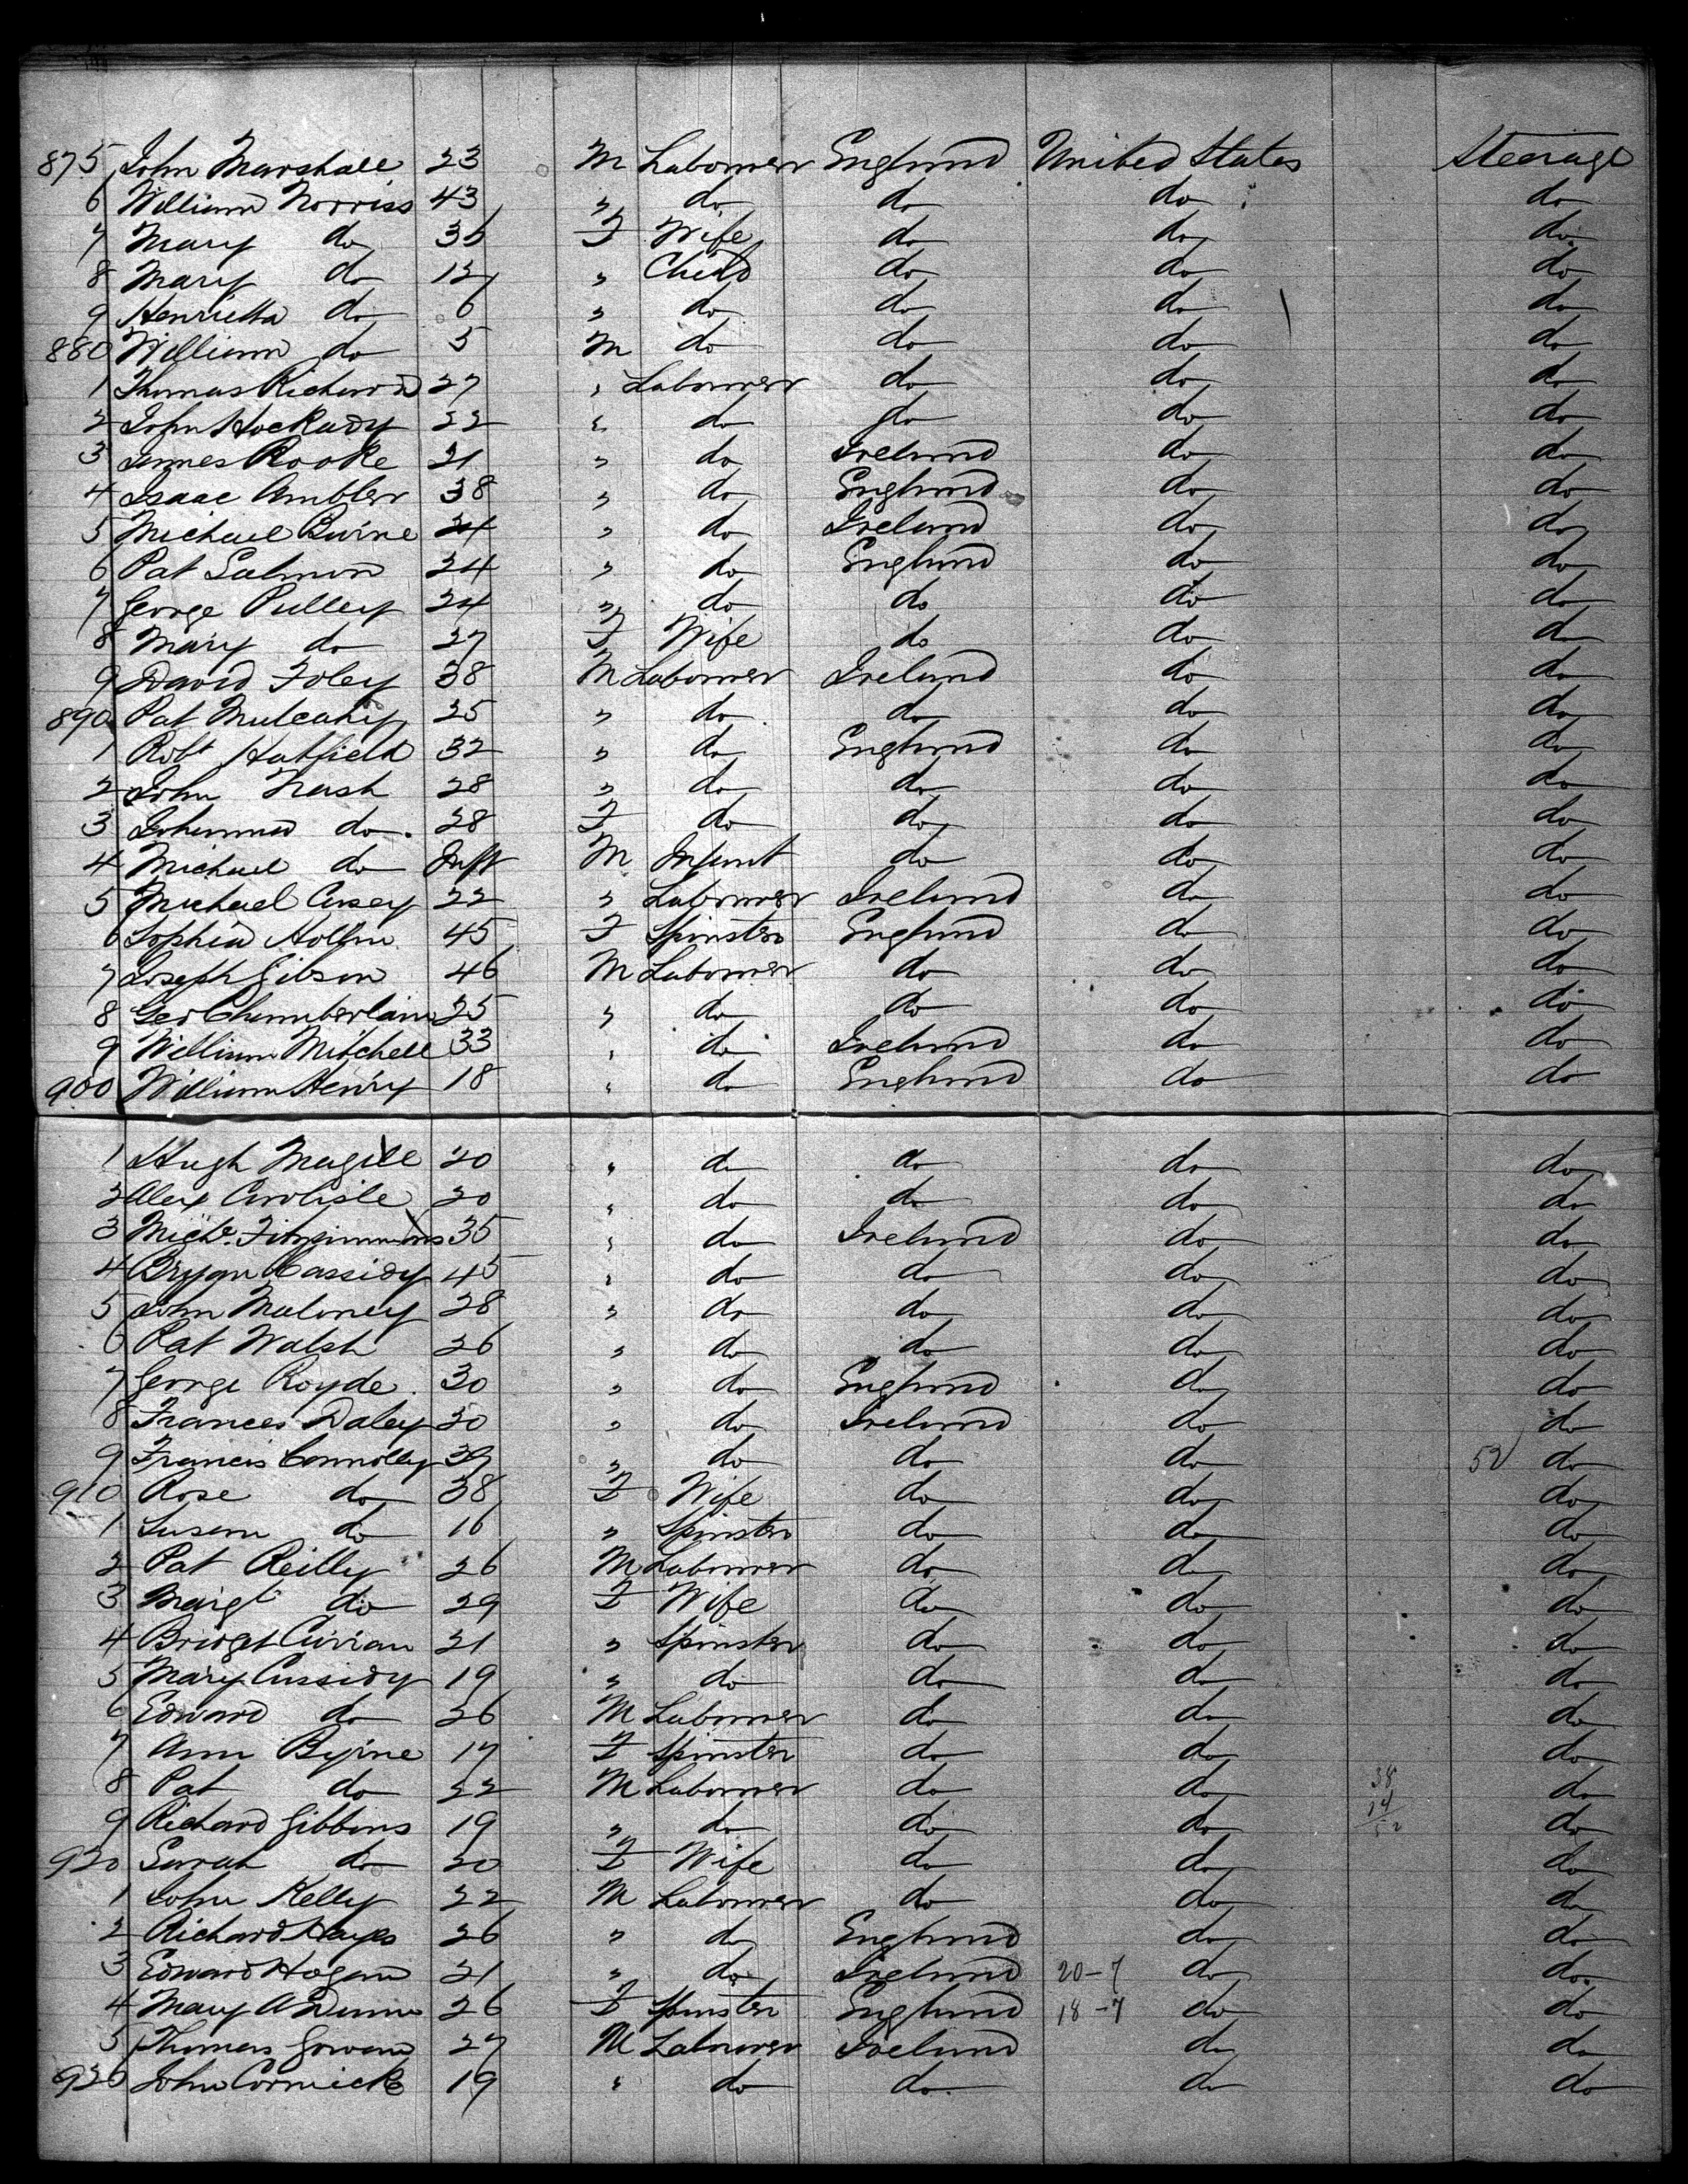 875 John Marshall 23 M Labourer England United States Steerage
6 William Norriss 43 " do do do do
7 Mary do 35 F Wife do do do
8 Mary do 12 " Child do do do
9 Henrietta do 6 " do do do do
880 William do 5 M do do do do
1 Thomas Richard 27 " Labourer do do do
2 John Hockady 22 " do do do do
3 James Rooke 21 " do Ireland do do
4 Isaac Ambler 38 " do England do do
5 Michael Burne 24 " do Ireland do do
6 Pat Salmon 24 " do England do do
7 George Pulley 24 " do do do do
8 Mary do 27 F Wife do do do
9 David Foley 38 M Labourer Ireland do do
890 Pat Mulcahy 25 " do do do do
1 Robt Hatfield 32 " do England do do
2 John Nash 28 " do do do do
3 Johanna do 28 F do do do do
4 Michael do Inft M Infant do do do
5 Michael Casey 22 " Labourer Ireland do do
6 Sophia 45 F Spinster England do do
7 Joseph Gibson 46 M Labourer do do do
8 Geo Chamberlain 25 " do do do do
9 William Mitchell 33 " do Ireland do do
900 William Henry 18 " do England do do
1 Hugh Magill 20 " do do do do
2 Alex Carlisle 20 " do do do do
3 Michl. Fitzsimmons 35 " do Ireland do do
4 Bryan Cassidy 45 " do do do do
5 John Maloney 28 " do do do do
6 Pat Walsh 26 " do do do do
7 George Royde 30 " do England do do
8 Frances Daley 30 " do Ireland do do
9 Francis Connolly 39 " do do do 52 do
910 Rose do 38 F Wife do do do
1 Susan do 16 " Spinster do do do
2 Pat Reilly 26 M Labourer do do do
3 Margt do 29 F Wife do do do
4 Bridget Curran 21 " Spinster do do do
5 Mary Cassidy 19 " do do do do
6 Edward do 26 M Labourer do do do
7 Ann Byrne 17 F Spinster do do do
8 Pat do 22 M Labourer do do 38 do
9 Richard Gibbons 19 " do do do 14 do
52
920 Sarah do 20 F Wife do do do
1 John Kelly 22 M Labourer do do do
2 Richard Hayes 26 " do England do do
3 Edward Hogan 21 " do Ireland 20-7 do do
4 Mary A Dunn 26 F Spinster England 18-7 do do
5 Thomas Gowan 27 M Labourer Ireland do do
926 John Cormick 19 " do do do do